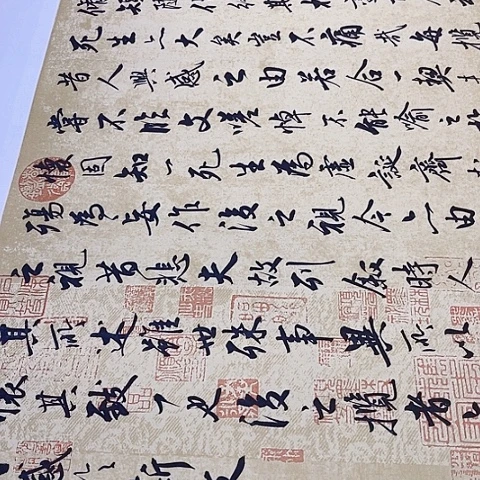 脩短隨化終期於
死生亦大矣豈不痛哉每攬
昔人興感之由若合一契
嘗不臨文嗟悼不能喻之於
懷固知一死生為虛誕齊
殤為妄作後之視今亦由
之視昔悲夫故列敘時人
其所述雖世殊事異所以
懷其致一也後之攬者亦
感於斯文